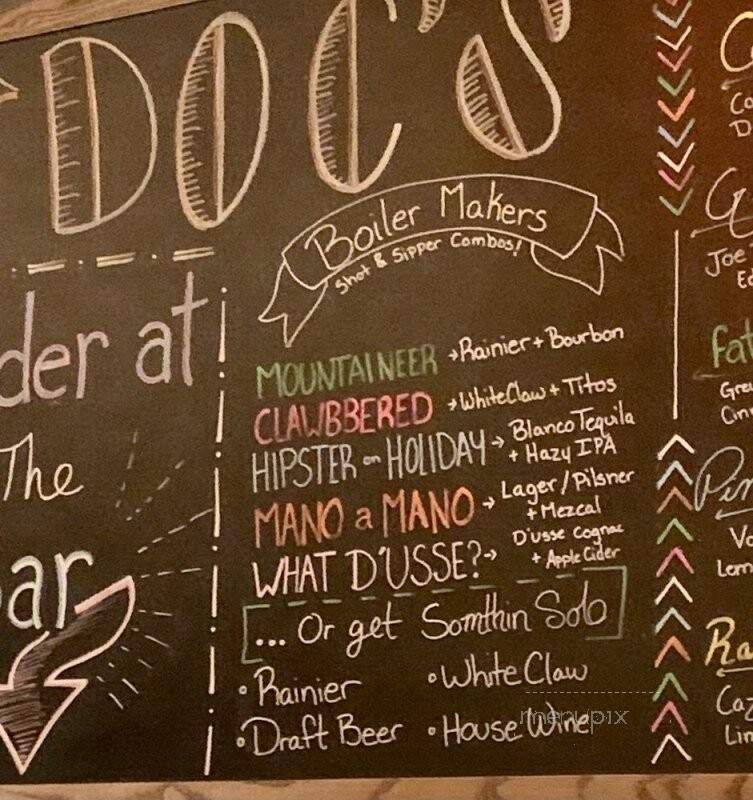 DOC'S
Boiler Makers
Shot & Sipper Combos!
MOUNTAINEER → Rainier + Bourbon
CLAWBBERED → WhiteClaw + Titos
HIPSTER on HOLIDAY → Blanco Tequila
+ Hazy IPA
MANO a MANO → Lager / Pilsner
+ Mezcal
WHAT D'USSE? → D'usse Cognac
+ Apple Cider
... Or get Somthin Solo
• Rainier
• White Claw
• Draft Beer
• House Wine
der at
The
ar
Joe
Fat
Gre
Cinn
Lem
Ra
Caz
Lin
menupix